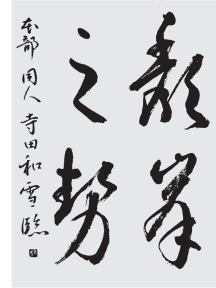 頽峯
之勢
本部 同人 寺田和雪臨